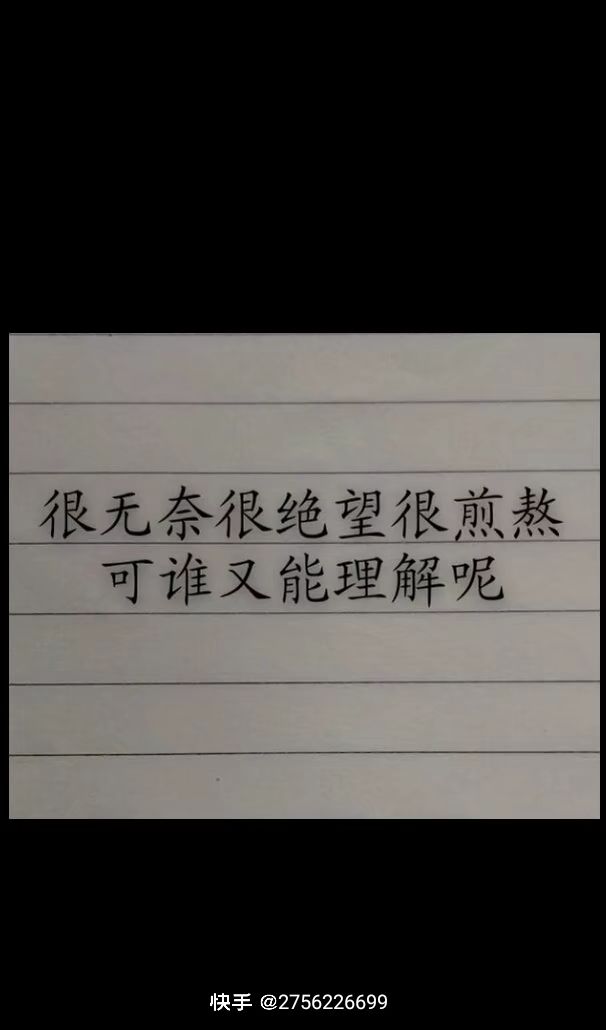 很无奈很绝望很煎熬
可谁又能理解呢
快手 @2756226699